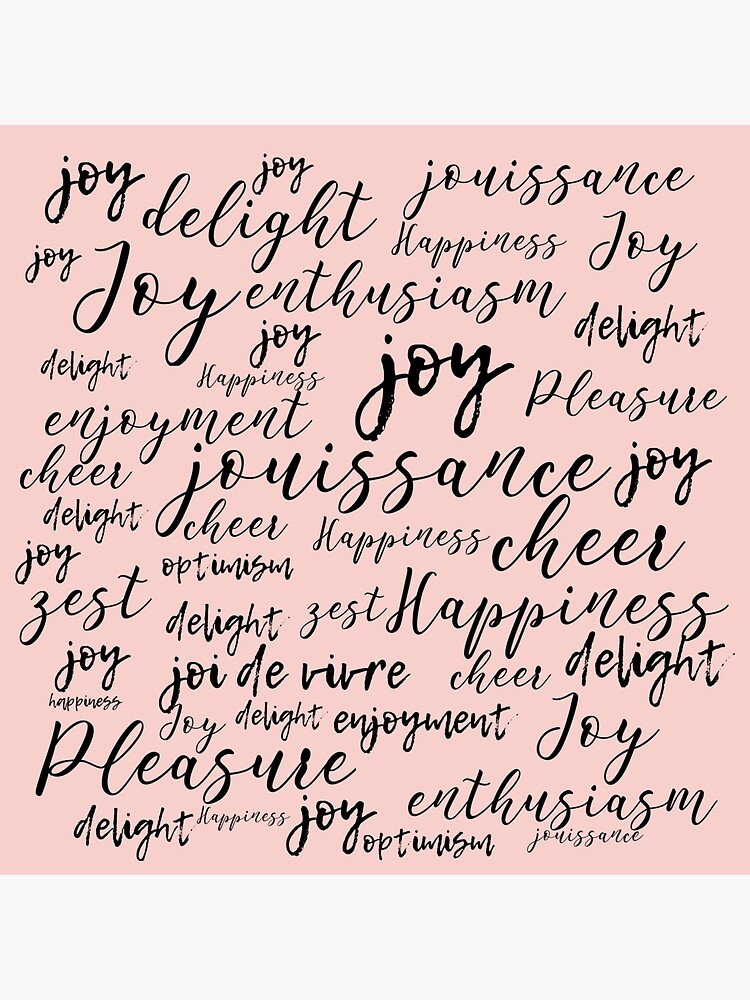 joy joy jouissance
delight Happiness Joy
joy Joy enthusiasm
joy delight
delight Happiness joy Pleasure
enjoyment
cheer jouissance joy
delight cheer Happiness cheer
joy optimism
zest delight zest Happiness
joy joi de vivre cheer delight
happiness Joy delight enjoyment Joy
Pleasure
enthusiasm
delight Happiness joy optimism jouissance